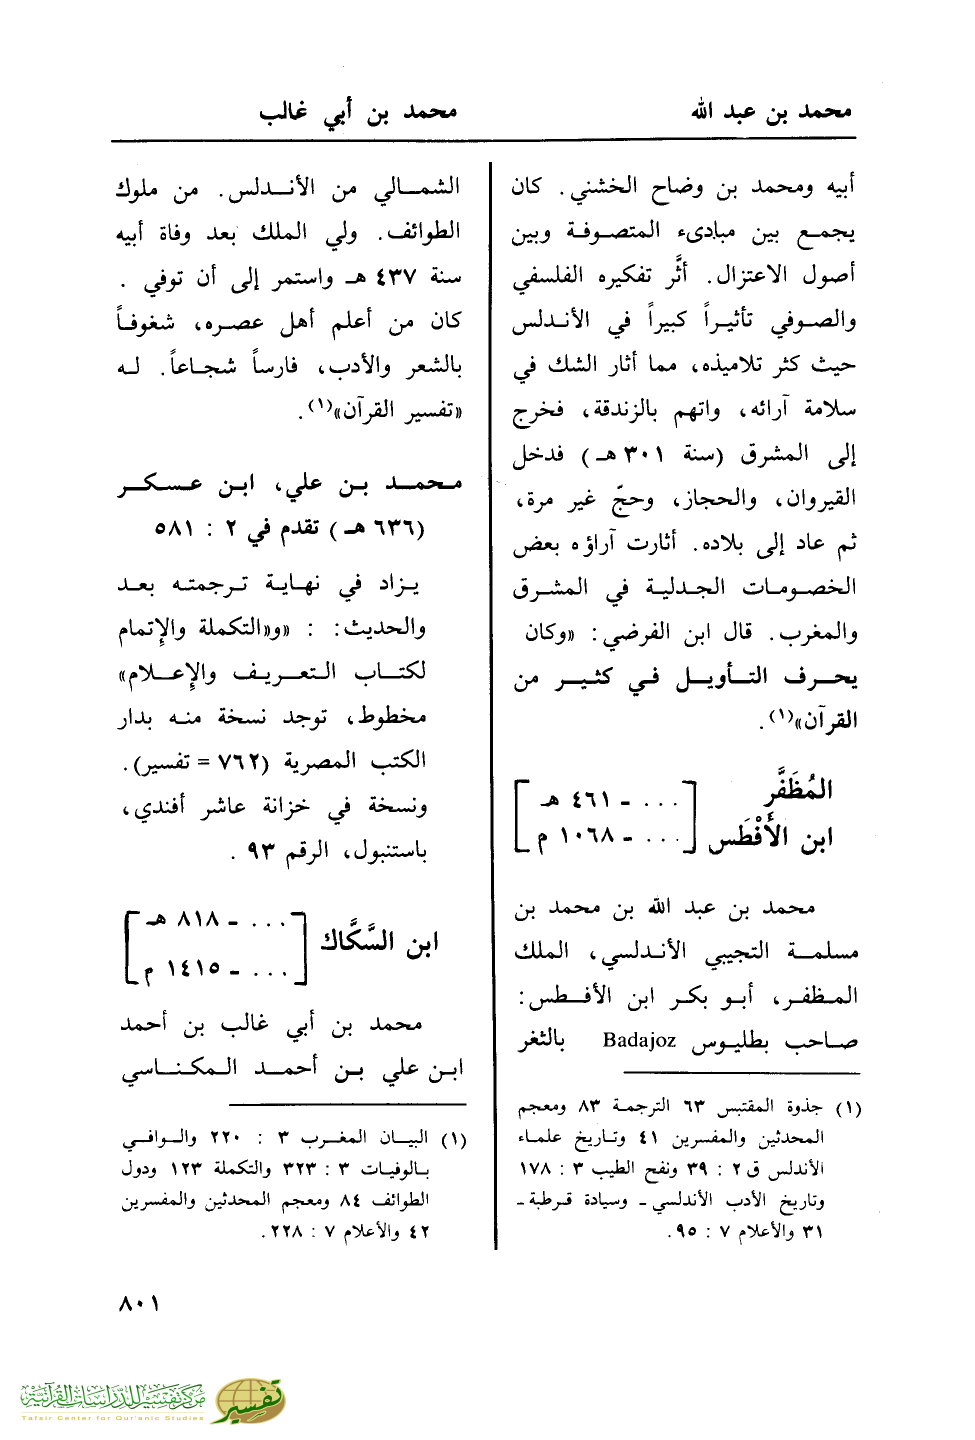 محمد بن عبد الله
محمد بن أبي غالب
أبيه ومحمد بن وضاح الخشني. كان
يجمع بين مبادىء المتصوفة وبين
أصول الاعتزال. أثَّر تفكيره الفلسفي
والصوفي تأثيراً كبيراً في الأندلس
حيث كثر تلاميذه، مما أثار الشك في
سلامة آرائه، واتهم بالزندقة، فخرج
إلى المشرق (سنة ٣٠١ هـ) فدخل
القيروان، والحجاز، وحجّ غير مرة،
ثم عاد إلى بلاده. أثارت آراؤه بعض
الخصومات الجدلية في المشرق
والمغرب. قال ابن الفرضي: «وكان
يحرف التأويل في كثير من
القرآن»(١).
المُظَفَّر
ابن الأَفْطَس
[... - ٤٦١ هـ
... - ١٠٦٨ م]
محمد بن عبد الله بن محمد بن
مسلمة التجيبي الأندلسي، الملك
المظفر، أبو بكر ابن الأفطس:
صاحب بطليوس Badajoz بالثغر
(١) جذوة المقتبس ٦٣ الترجمة ٨٣ ومعجم
المحدثين والمفسرين ٤١ وتاريخ علماء
الأندلس ق ٢ : ٣٩ ونفح الطيب ٣ : ١٧٨
وتاريخ الأدب الأندلسي - وسيادة قرطبة -
٣١ والأعلام ٧ : ٩٥.
الشمالي من الأندلس. من ملوك
الطوائف. ولي الملك بعد وفاة أبيه
سنة ٤٣٧ هـ واستمر إلى أن توفي .
كان من أعلم أهل عصره، شغوفاً
بالشعر والأدب، فارساً شجاعاً. له
«تفسير القرآن»(١).
محمد بن علي، ابن عسكر
(٦٣٦ هـ) تقدم في ٢ : ٥٨١
يزاد في نهاية ترجمته بعد
والحديث: : «و«التكملة والإتمام
لكتاب التعريف والإعلام»
مخطوط، توجد نسخة منه بدار
الكتب المصرية (٧٦٢ = تفسير).
ونسخة في خزانة عاشر أفندي،
باستنبول، الرقم ٩٣ .
ابن السَّكَّاك
[... - ٨١٨ هـ
... - ١٤١٥ م]
محمد بن أبي غالب بن أحمد
ابن علي بن أحمد المكناسي
(١) البيان المغرب ٣ : ٢٢٠ والوافي
بالوفيات ٣ : ٣٢٣ والتكملة ١٢٣ ودول
الطوائف ٨٤ ومعجم المحدثين والمفسرين
٤٢ والأعلام ٧ : ٢٢٨.
٨٠١
مركز تفسير للدراسات القرآنية
Tafsir Center for Qur'anic Studies
تفسير